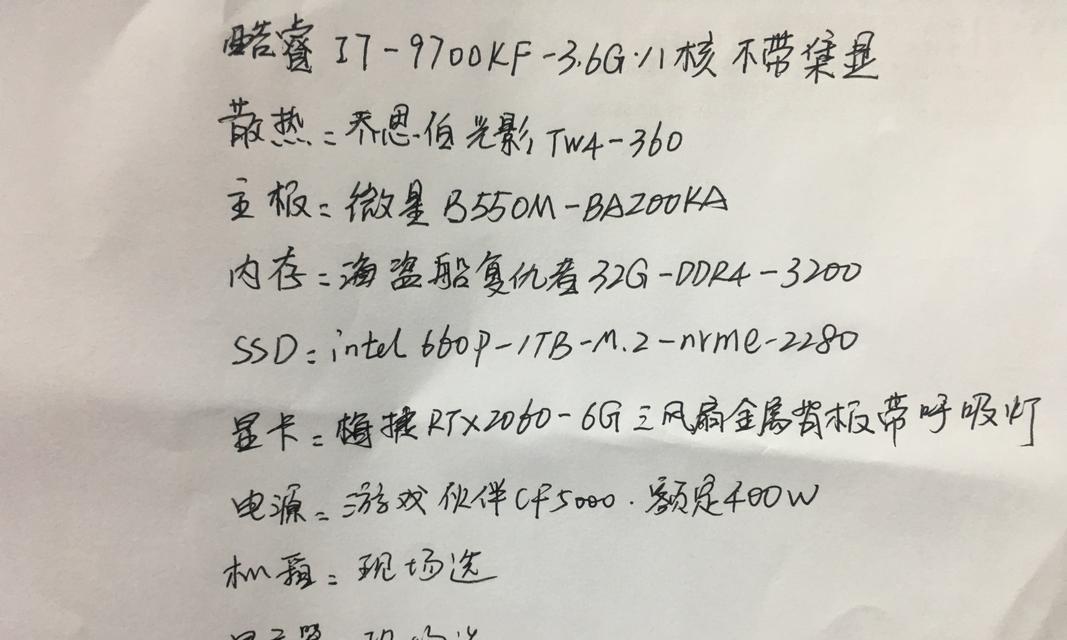 酷睿 I7-9700KF-3.6G·八核 不带集显
散热:乔思伯光影TW4-360
主板:微星B550M-BAZOOKA
内存:海盗船复仇者32G-DDR4-3200
SSD:intel 660P-1TB-M.2-nvme-2280
显卡:梅捷RTX2060-6G三风扇金属背板带呼吸灯
电源:游戏伙伴CF5000·额定400W
机箱:现场选